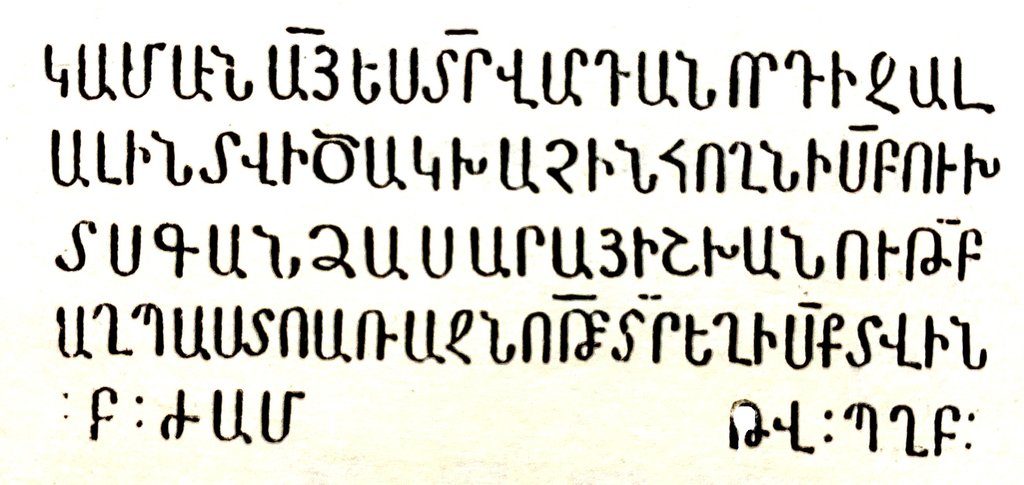 ԿԱՄԱՒՆԱ̅ՅԵՍՏ̅ՐՎԱՐԴԱՆՈՐԴԻՋԱԼ
ԱԼԻՆՏՎԻԾԱԿԽԱՉԻՆՀՈՂՆԻՍ̅ԲՈՒԽ
ՏՍԳԱՆՁԱՍԱՐԱՅԻՇԽԱՆՈՒԹԲ
ԱՂՊԱՍՏՈԱՌԱՋՆՈԹԵՏՐԵՂԻՍ̅ՔՏՎԻՆ
:Բ:ԺԱՄ ԹՎ:ՊՂԲ: